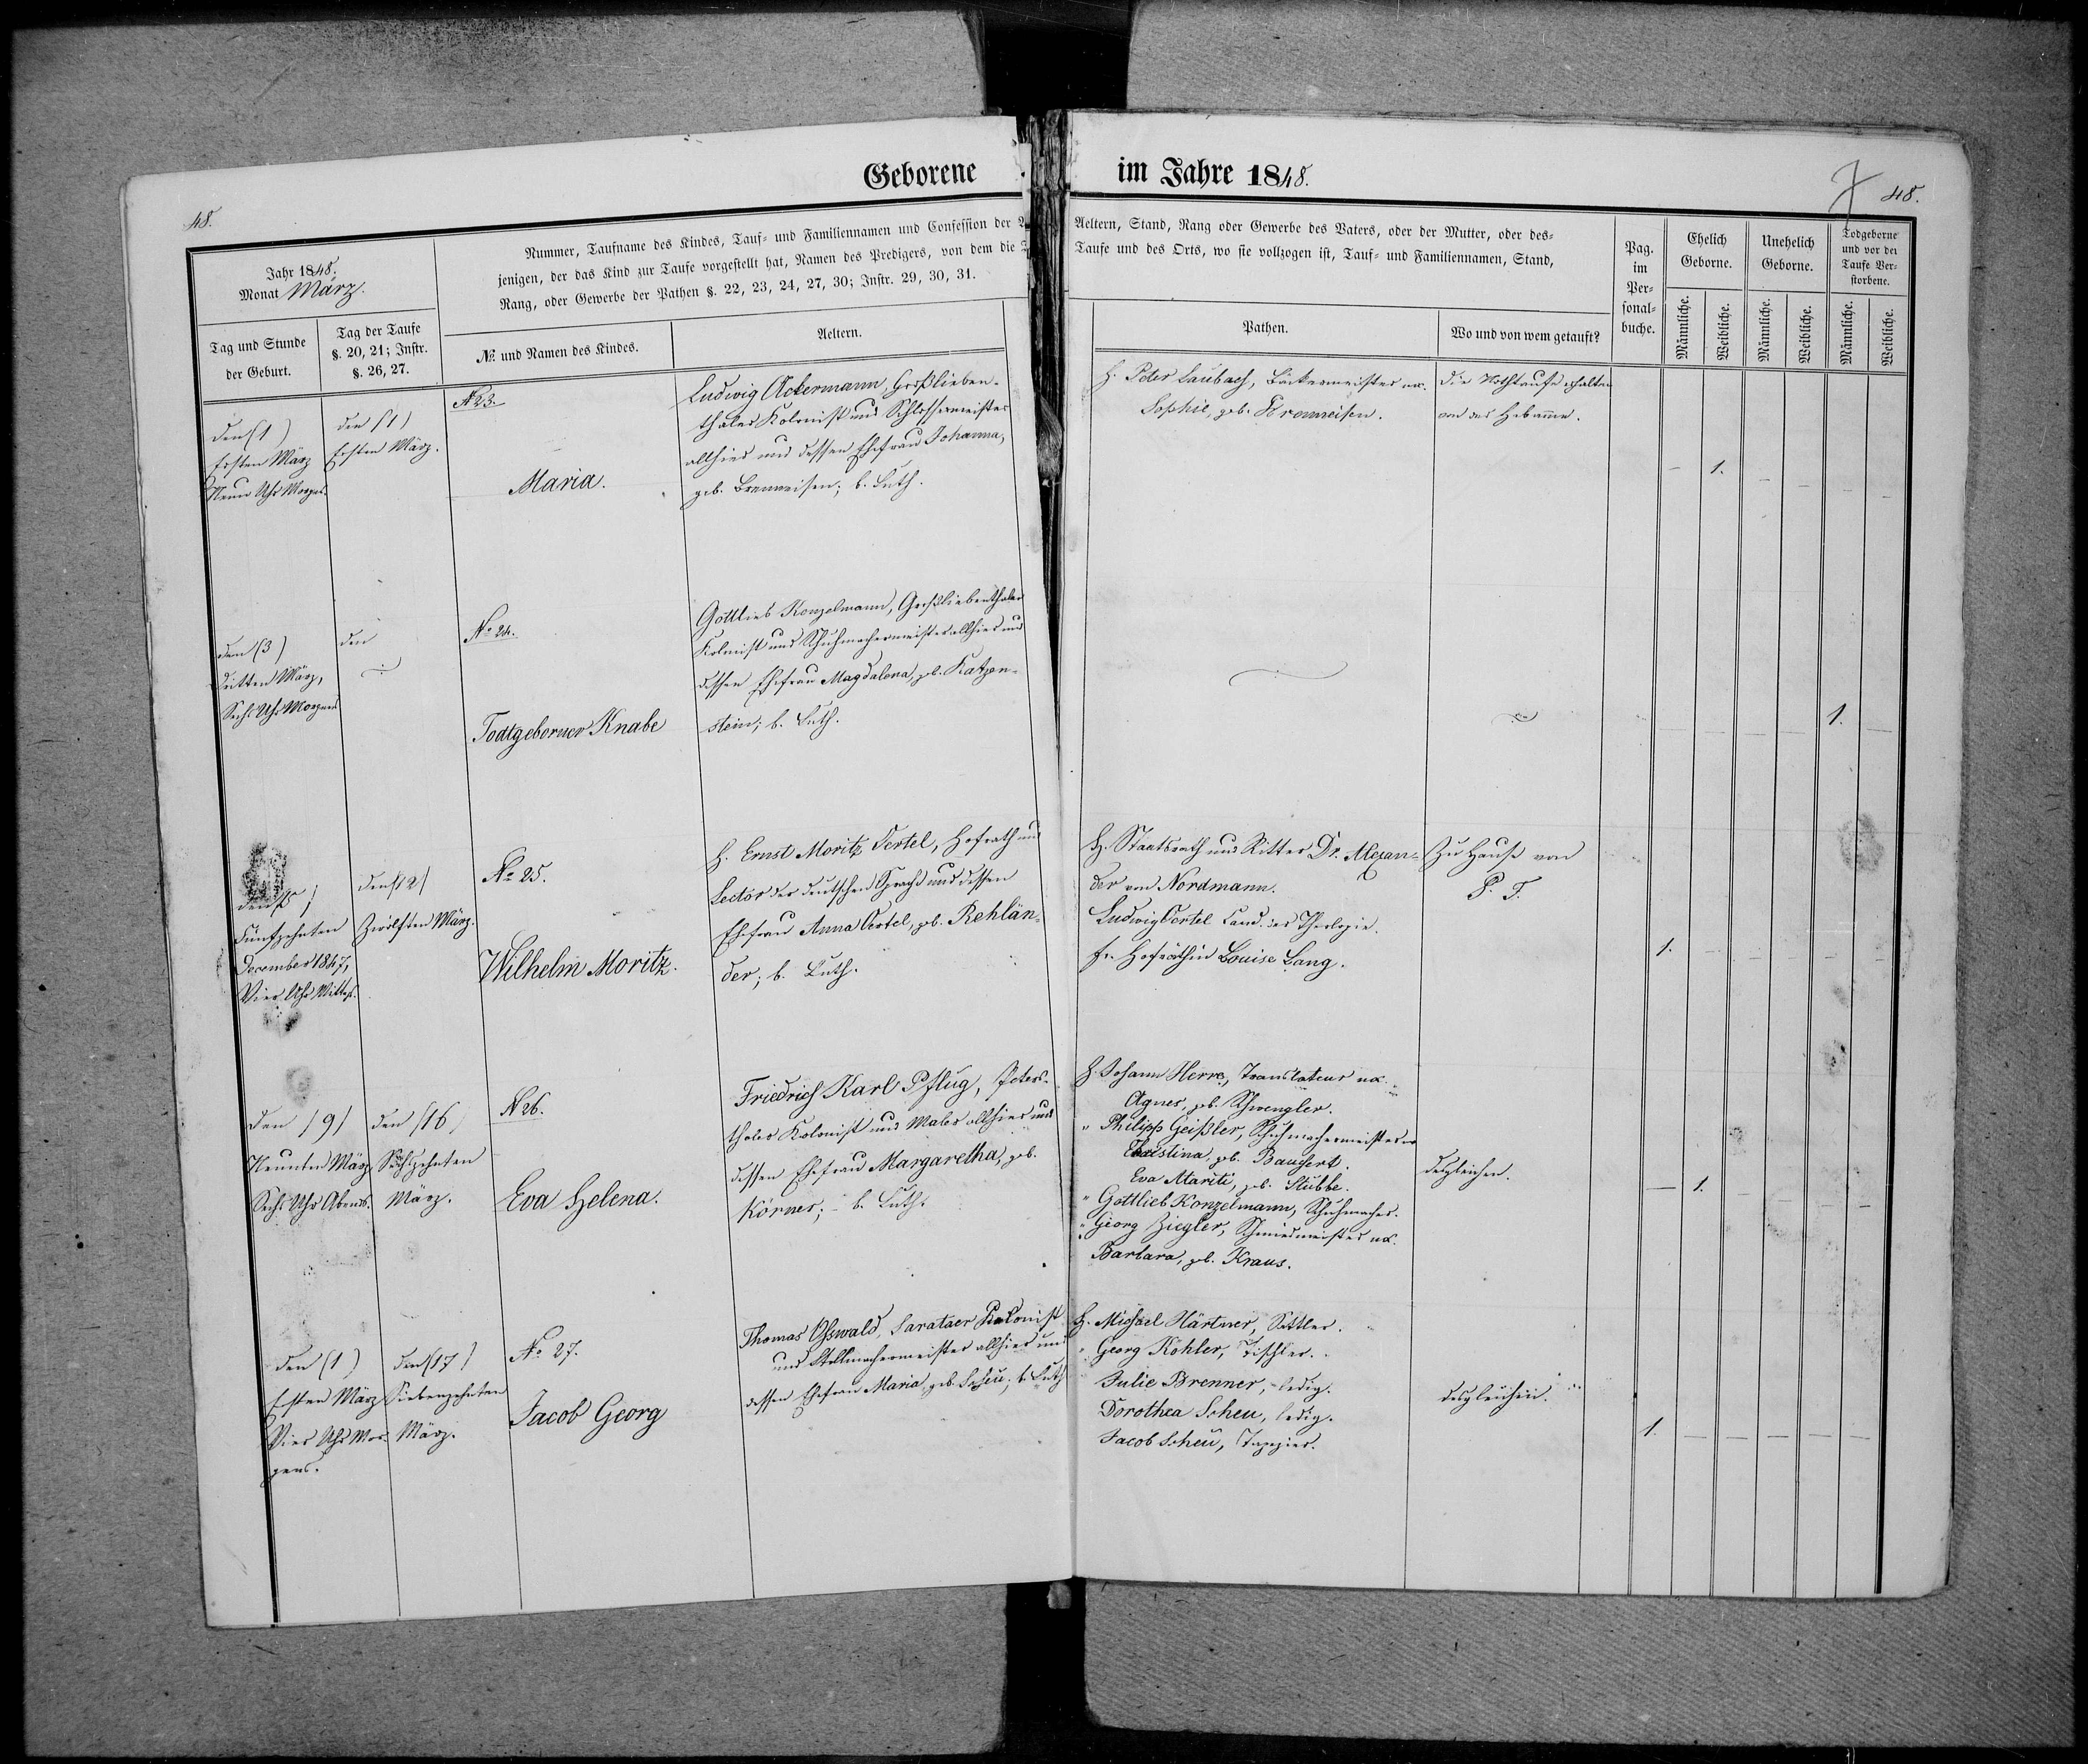 Geborene
im Jahre 1848.
48.
48.
Jahr 1848.
Monat März.
Nummer, Taufname des Kindes, Tauf- und Familiennamen und Confession der
jenigen, der das Kind zur Taufe vorgestellt hat, Namen des Predigers, von dem die
Rang, oder Gewerbe der Pathen §. 22, 23, 24, 27, 30; Instr. 29, 30, 31.
Aeltern, Stand, Rang oder Gewerbe des Vaters, oder der Mutter, oder des-
Taufe und des Orts, wo sie vollzogen ist, Tauf- und Familiennamen, Stand,
Pag.
im
Per-
sonal-
buche.
Ehelich
Geborne.
Unehelich
Geborne.
Todgeborne
und vor der
Taufe Ver-
storbene.
Tag und Stunde
der Geburt.
Tag der Taufe
§. 20, 21; Instr.
§. 26, 27.
№ und Namen des Kindes.
Aeltern.
Pathen.
Wo und von wem getauft?
Männliche.
Weibliche.
Männliche.
Weibliche.
Männliche.
Weibliche.
den (1)
Ersten März
Neun Uhr Morgens.
den (1)
Ersten März.
N 23.
Maria.
Ludwig Ackermann, Großlieben-
thaler Kolonist und Schlossermeister
allhier und dessen Ehefrau Johanna,
geb. Bromeisen; b. Luth.
H. Peter Laubach, Bäckermeister ux.
Sophie, geb. Bromeisen.
die Nothtaufe erhalten
von der Hebamme.
1.
den (3)
dritten März,
Sechs Uhr Morgens
den
No 24.
Todtgeborner Knabe
Gottlieb Konzelmann, Großliebenthaler
Kolonist und Schuhmachermeister allhier und
dessen Ehefrau Magdalena, geb. Katzen-
stein; b. Luth.
1.
Fünfzehnten
December 1847,
Vier Uhr Mittags.
den (12)
Zwölften März.
No 25.
Wilhelm Moritz.
H. Ernst Moritz Oertel, Hofrath und
Lector der deutschen Sprache und dessen
Ehefrau Anna Oertel, geb. Rehlän-
der; b. Luth.
H. Staatsrath und Ritter Dr. Alexan-
der von Nordmann.
Ludwig Oertel Cand. der Theologie.
Fr. Hofräthin Louise Lang.
Zu Hause von
P. F.
1.
den (9)
Neunten März
Sechs Uhr Abends.
den (16)
Sechszehnten
März.
N 26.
Eva Helena.
Friedrich Karl Pflug, Peters-
thaler Kolonist und Maler allhier und
dessen Ehefrau Margaretha, geb.
Körner; b. Luth.
H. Johann Herre, Translateur ux.
Agnes, geb. Schwengler.
" Philipp Geißler, Schuhmachermeister ux
Christina, geb. Bauchert.
Eva Mariti, geb. Stübbe.
" Gottlieb Konzelmann, Schuhmacher.
" Georg Ziegler, Schmiedmeister ux.
Barbara, geb. Kraus.
desgleichen.
1.
den (1)
Ersten März
Vier Uhr Mor-
gens.
den (17)
Siebenzehnten
März.
No 27.
Jacob Georg
Thomas Osswald, Sarataer Kolonist
und Stellmachermeister allhier und
dessen Ehefrau Maria, geb. Scheu; b. Luth
H. Michael Härtner, Sattler.
" Georg Köhler, Tischler.
Julie Brenner, ledig.
Dorothea Scheu, ledig.
Jacob Scheu, Tapezier.
desgleichen.
1.